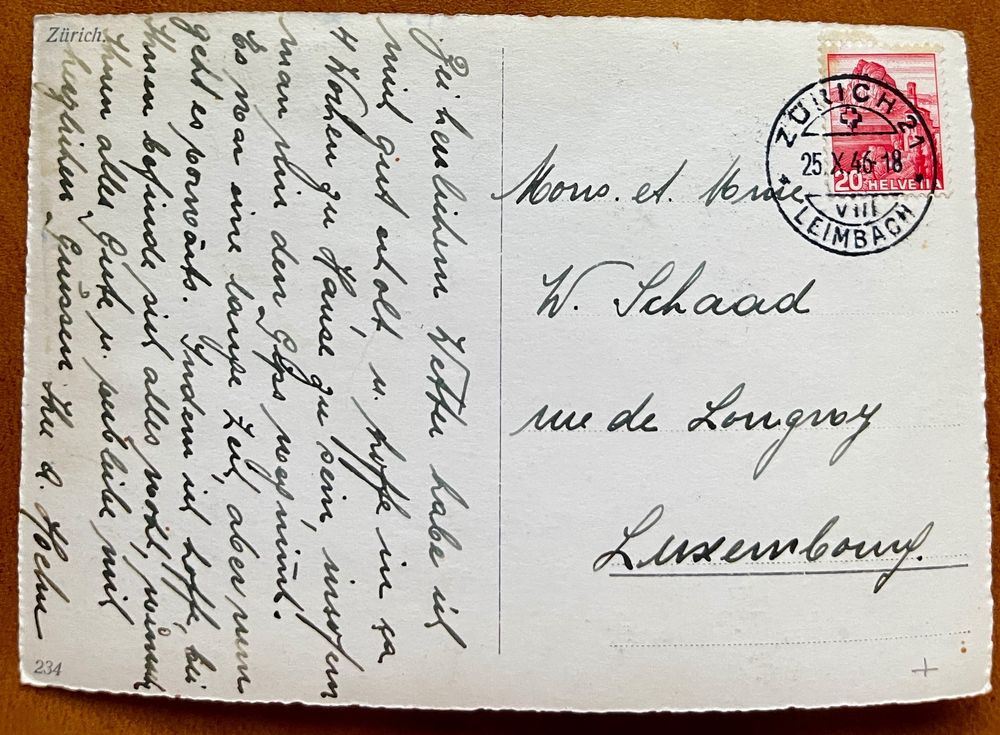 Zürich.
Bei herrlichem Wetter habe ich
mich gut erholt u. hoffe in ca
4 Wochen zu Hause zu sein, insofern
man mir den Gips wegnimmt.
Es war eine lange Zeit, aber nun
geht es vorwärts. Indem ich hoffe, bei
Ihnen befinde sich alles wohl, wünsche
Ihnen alles Gute u. verbleibe mit
herzlichen Grüssen Ihr
234
ZÜRICH 21
25.X.46-18
VIII
LEIMBACH
20 HELVETIA
Mons. et. Mme
W. Schaad
rue de Longwy
Luxembourg.